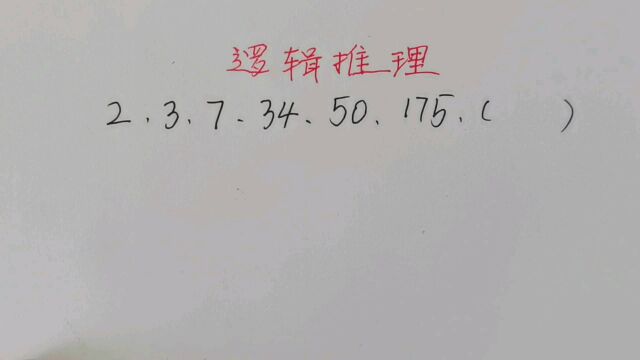 逻辑推理
2.3.7.34.50.175.(    )